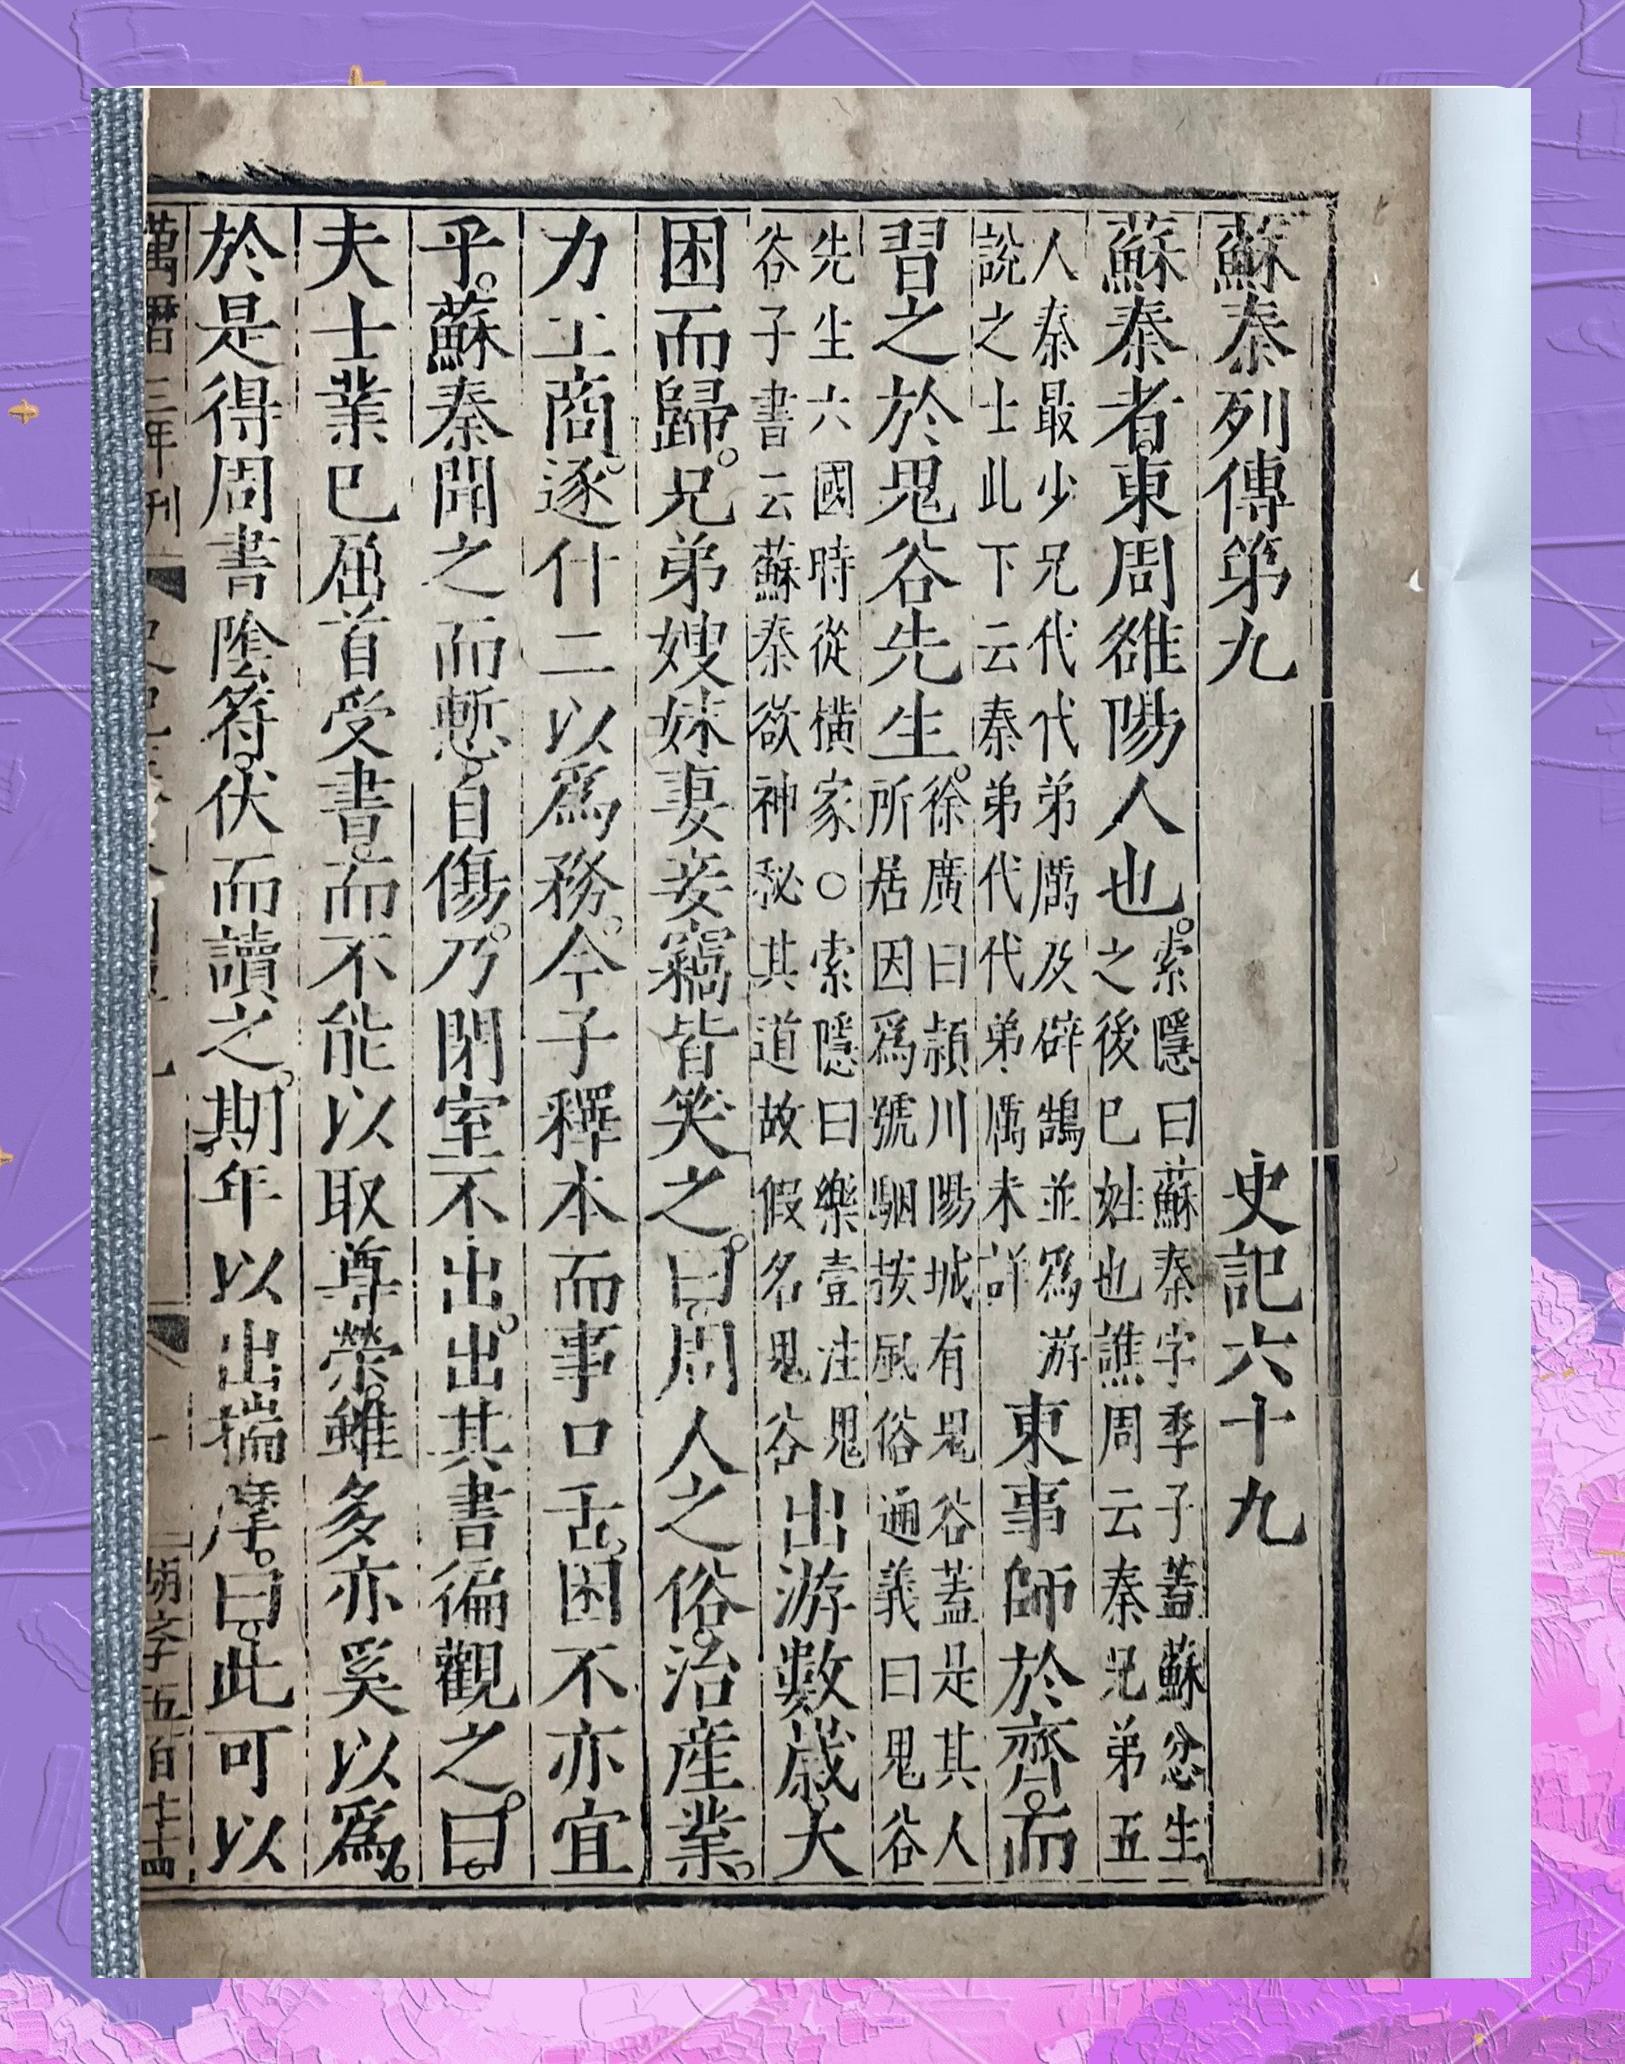 蘇秦列傳第九　史記六十九
蘇秦者。東周雒陽人也。索隱曰蘇秦字季子蓋蘇忿生之後巳姓也譙周云秦兄弟五
人秦最少兄代代弟厲及辟鵠並爲游說之士此下云秦弟代代弟厲未詳東事師於齊。而
習之於鬼谷先生。徐廣曰潁川陽城有鬼谷蓋是其人所居因爲號駰按風俗通義曰鬼谷
先生六國時從橫家○索隱曰樂壹注鬼谷子書云蘇秦欲神秘其道故假名鬼谷出游數歲。大
困而歸。兄弟嫂妹妻妾竊皆笑之。曰。周人之俗。治產業。
力工商。逐什二以爲務。今子釋本而事口舌。困不亦宜
乎。蘇秦聞之而慙。自傷。乃閉室不出。出其書徧觀之。曰。
夫士業巳屈首受書。而不能以取尊榮。雖多亦奚以爲。
於是得周書陰符。伏而讀之。期年以出揣摩。曰。此可以
萬曆三年刊